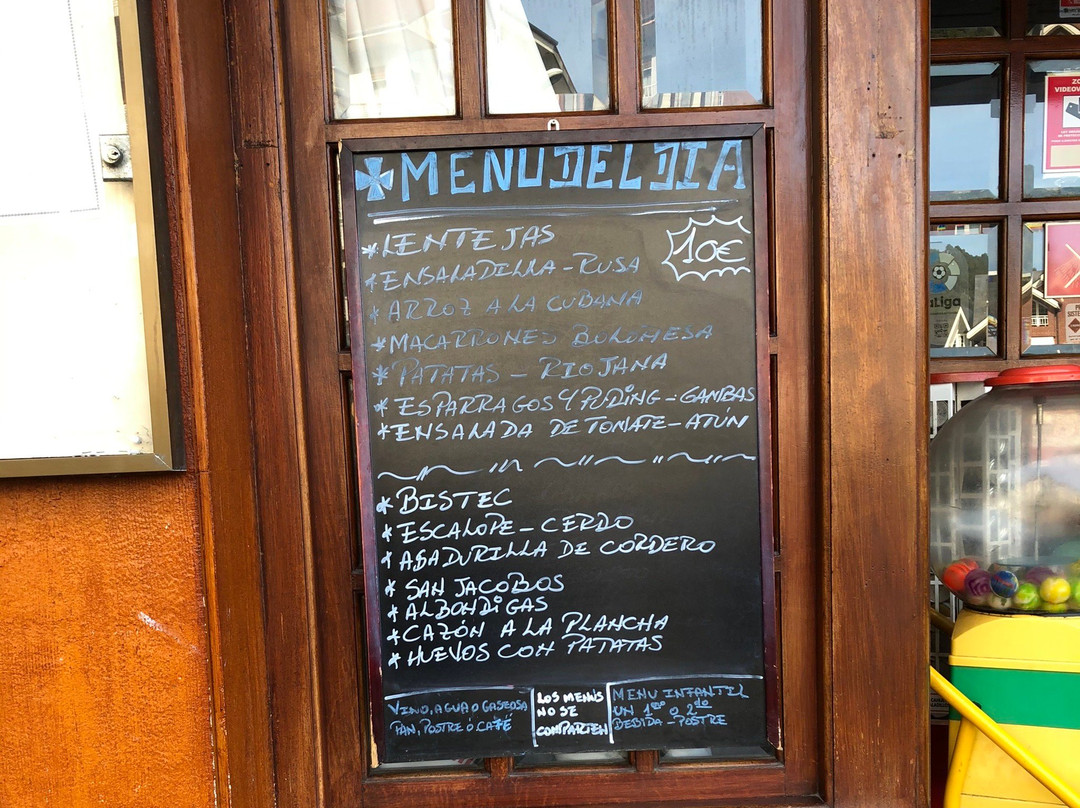 MENU DEL DIA
*LENTEJAS
10€
*ENSALADILLA-RUSA
*ARROZ A LA CUBANA
*MACARRONES BOLOÑESA
*PATATAS - RIOJANA
*ESPARRAGOS Y PUDING-GAMBAS
*ENSALADA DE TOMATE-ATÚN
*BISTEC
*ESCALOPE-CERDO
*ASADURILLA DE CORDERO
*SAN JACOBOS
*ALBONDIGAS
*CAZÓN A LA PLANCHA
*HUEVOS CON PATATAS
VINO, AGUA O GASEOSA
PAN, POSTRE Ó CAFÉ
LOS MENÚS
NO SE
COMPARTEN
MENU INFANTIL
UN 1ero o 2do
BEBIDA-POSTRE
ZO
VIDEOV
aLiga